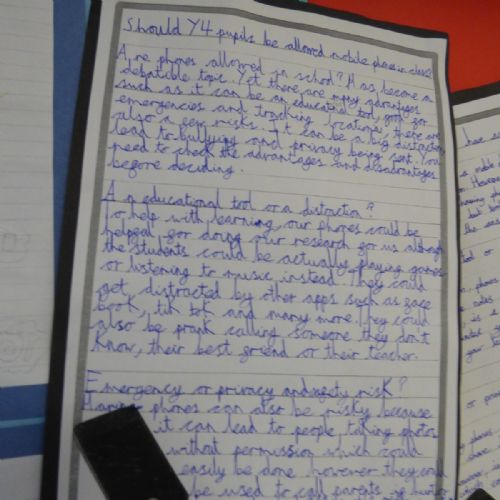 Should Y4 pupils be allowed mobile phones in class?
Are phones allowed in school? Has become a
debatible topic. Yet there are many advantages
such as it can be an educational tool, good for
emergencies and tracking locations, there are
also a few risks. It can be a big distraction
lead to bullying and privacy being sent. You
need to check the advantages and disadvantages
before deciding.
An educational tool or a distraction?
To help with learning our phones could be
helpeal for doing our research for us although
the students could be actually playing games
or listening to music instead. They could
get distracted by other apps such as face
book, tik tok and many more. They could
also be prank calling someone they don't
Know, their best friend or their teacher.
Emergency or privacy and safety risk?
Having phones can also be risky because
it can lead to people, taking photos
without permission which could
easily be done however they could
be used to call parents